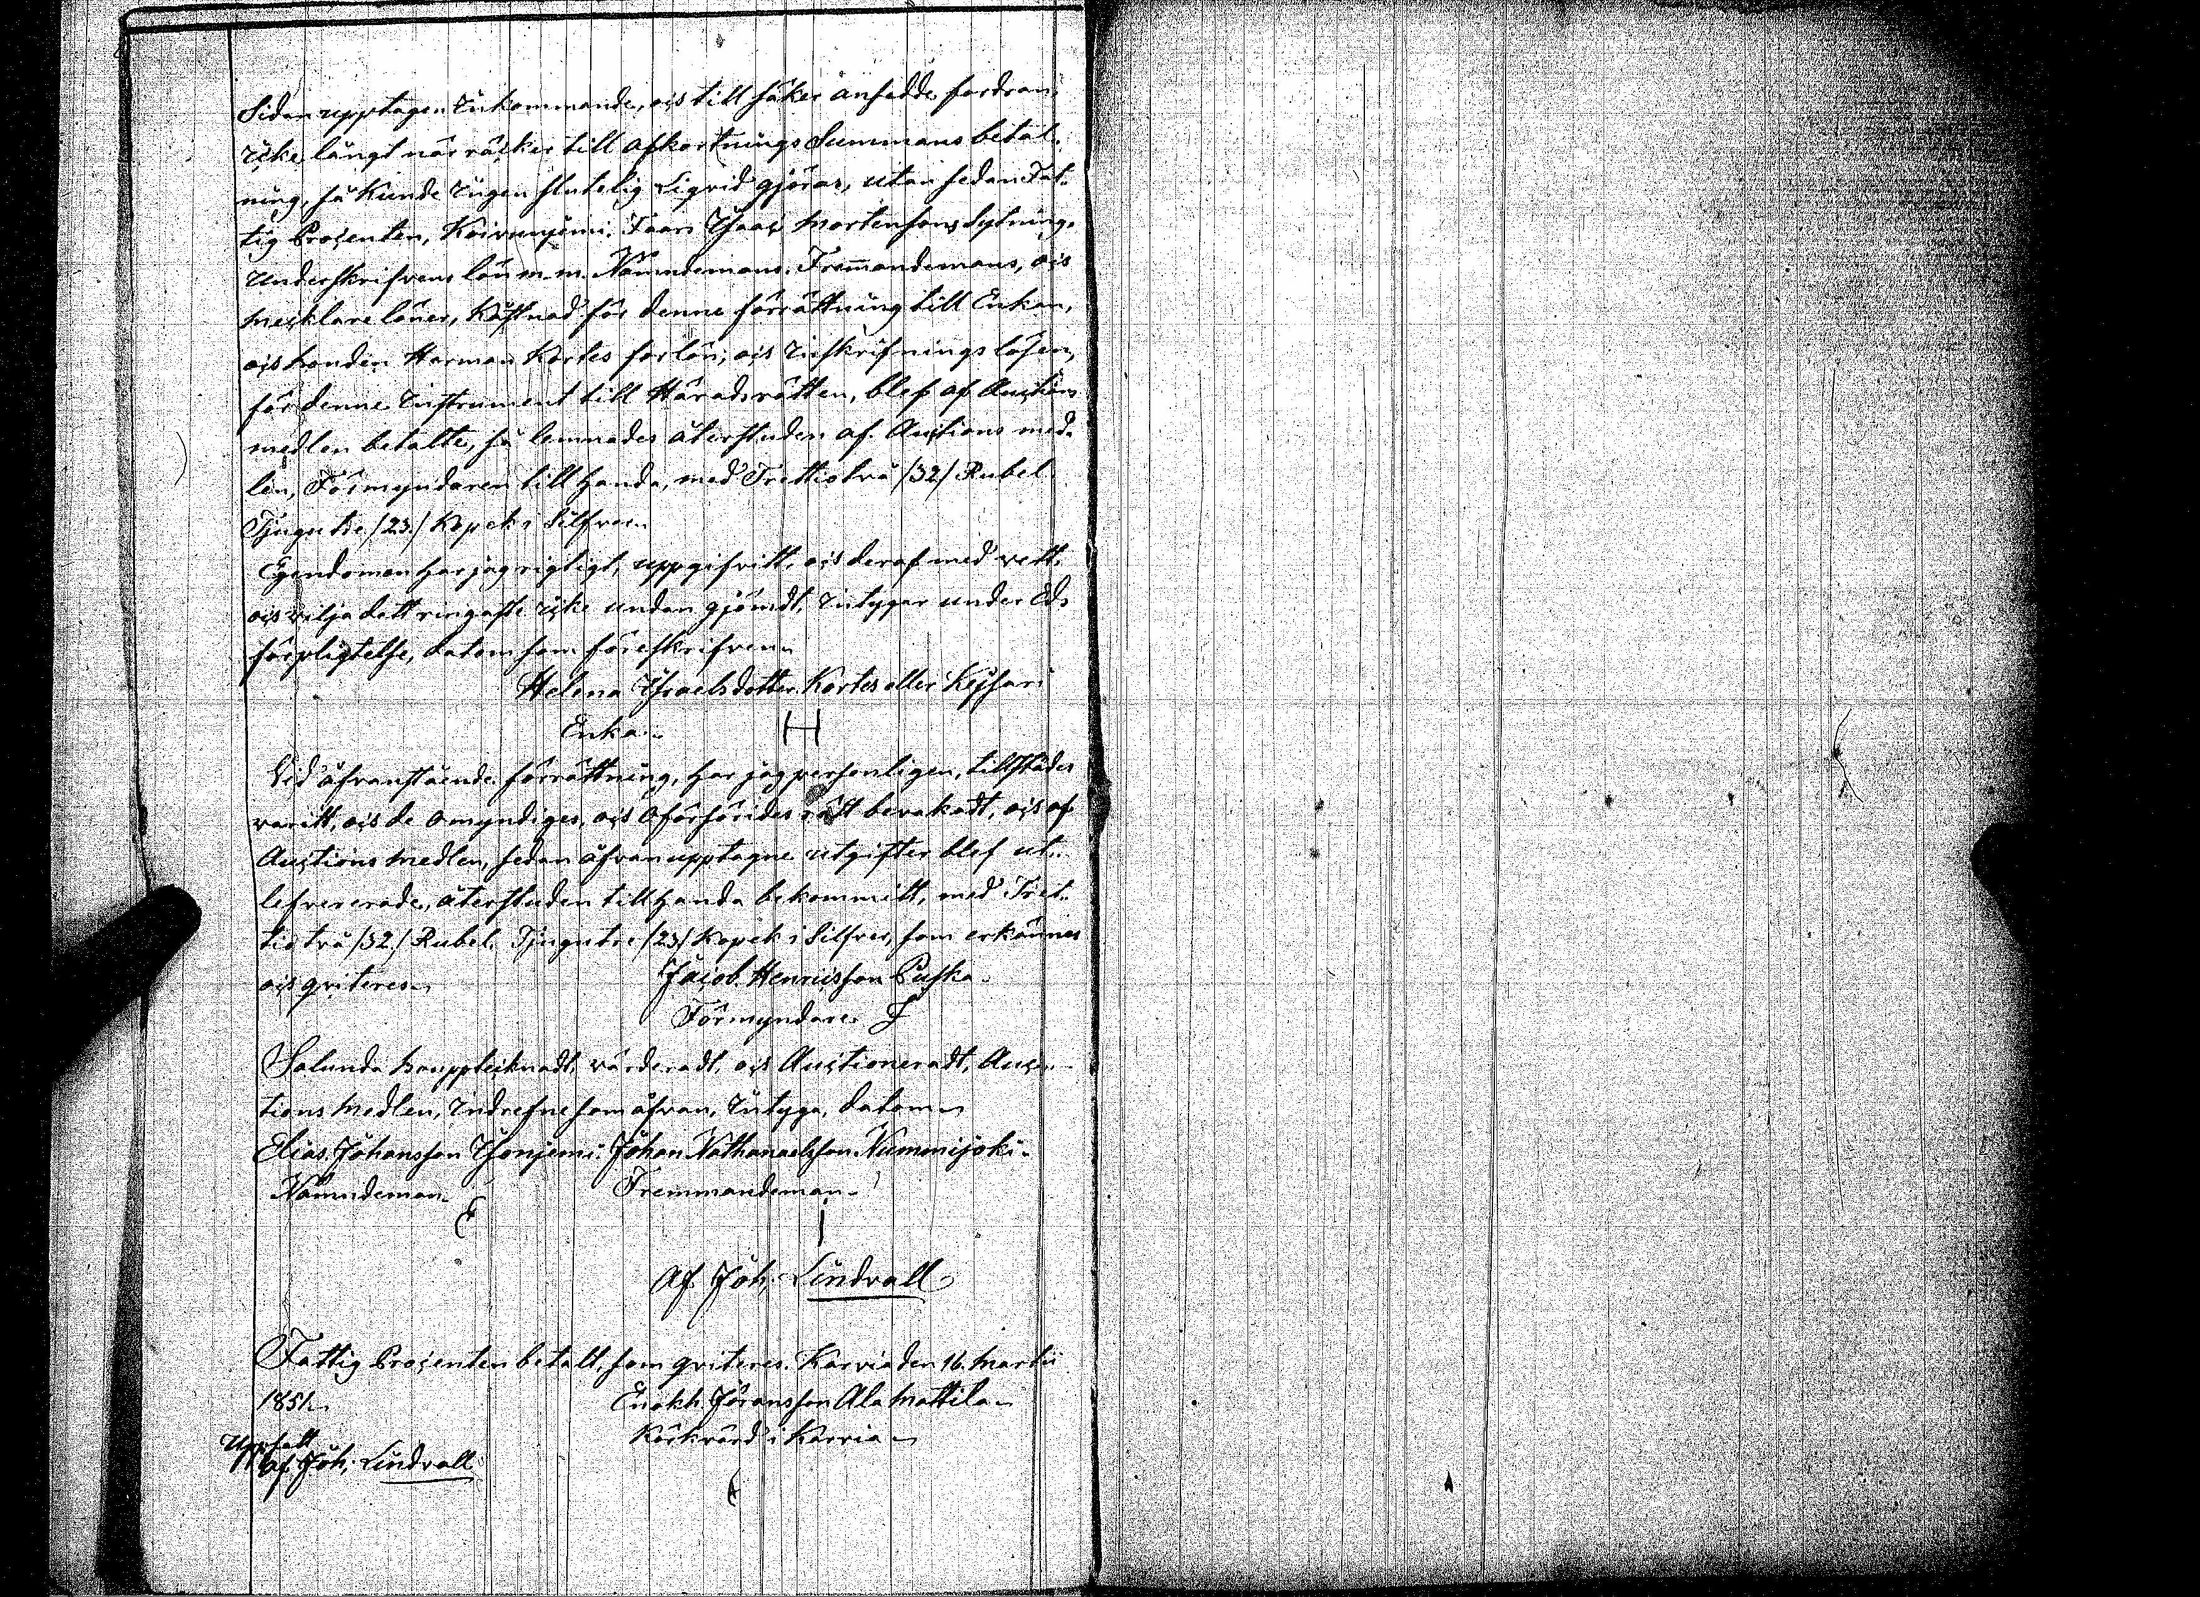 Sidan upptagen Inkommande, och till säker ansedde fordran,
icke långt när räcker till afkortnings Summans betal-
ning, så kunde ingen slutelig Liqvid gjöras, utan sedan Fat-
tig Procenten, Koivunjemi Faari Isaac Mortensons Sytning,
Underskrifvens lön m. m. Nämndemans, Fremmandemans, och
mecklare löner, Kostnad för denne förrättning till Enkan,
och bonden Herman Kortes forlön; och Inskrifnings lösen,
för denne Instrument till Häradsrätten, blef af Auctions
medlen betalte, så lemnades återstuden af Auctions med-
len, Förmyndaren till handa, med Trettiotvå /32/ Rubel
Tjugutre /23/ Kopek i Silfver.
Egendomen har jag rigtigt, uppgifvitt, och deraf med vett,
och vilja dett ringaste icke undan gjömdt, intygar under Eds
förpligtelse, datom som föreskrifven
Helena Israelsdotter Kortes eller Kejsari
Enka H
Vid åfvanstående förrättning, har jag personligen, tillstädes
varitt, och de Omyndiges, och Oförsörides rätt bevakadt, och af
Auctions Medlen, sedan åfvanupptagne utgifter blef ut-
lefvererade, återstuden till handa bekommitt, med Tret-
tiotvå /32/ Rubel Tjugutre /23/ Kopek i Silfver, som erkännes
och qviteres
Jacob Henricsson Puska
Förmyndare
Salunda hauppteiknadt, värderadt, och Auctioneradt, Auc-
tions Medlen, Indrefne som åfvan, Intyga, datom
Elias Johansson Isonjemi Johan Nathanaelsson Nummijoki
Nämndeman Fremmandeman
Af Joh: Lindvall
Fattig Procenten betalt, som qviteres. Karvia den 16. Martii
1851. Enokh Jöransson Ala Mattila
Körkvärd i Karvia
Uppsatt
af Joh: Lindvall